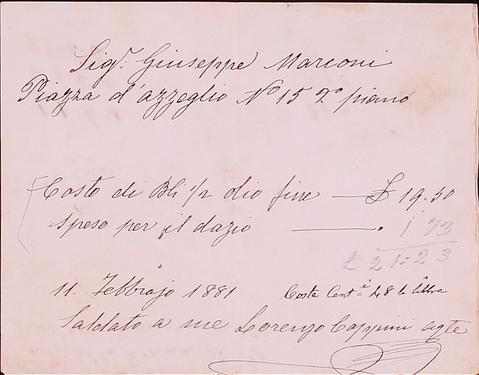 Sigr. Giuseppe Marconi
Piazza d'azzeglio No 15 2o piano
Costo di Bli 1/2 olio fine — £ 19.50
Speso per il dazio — . 1 73
£ 21.23
11. Febbrajo 1881 Costa Cent.i 48 la
Saldato a me Lorenzo Cappini agte